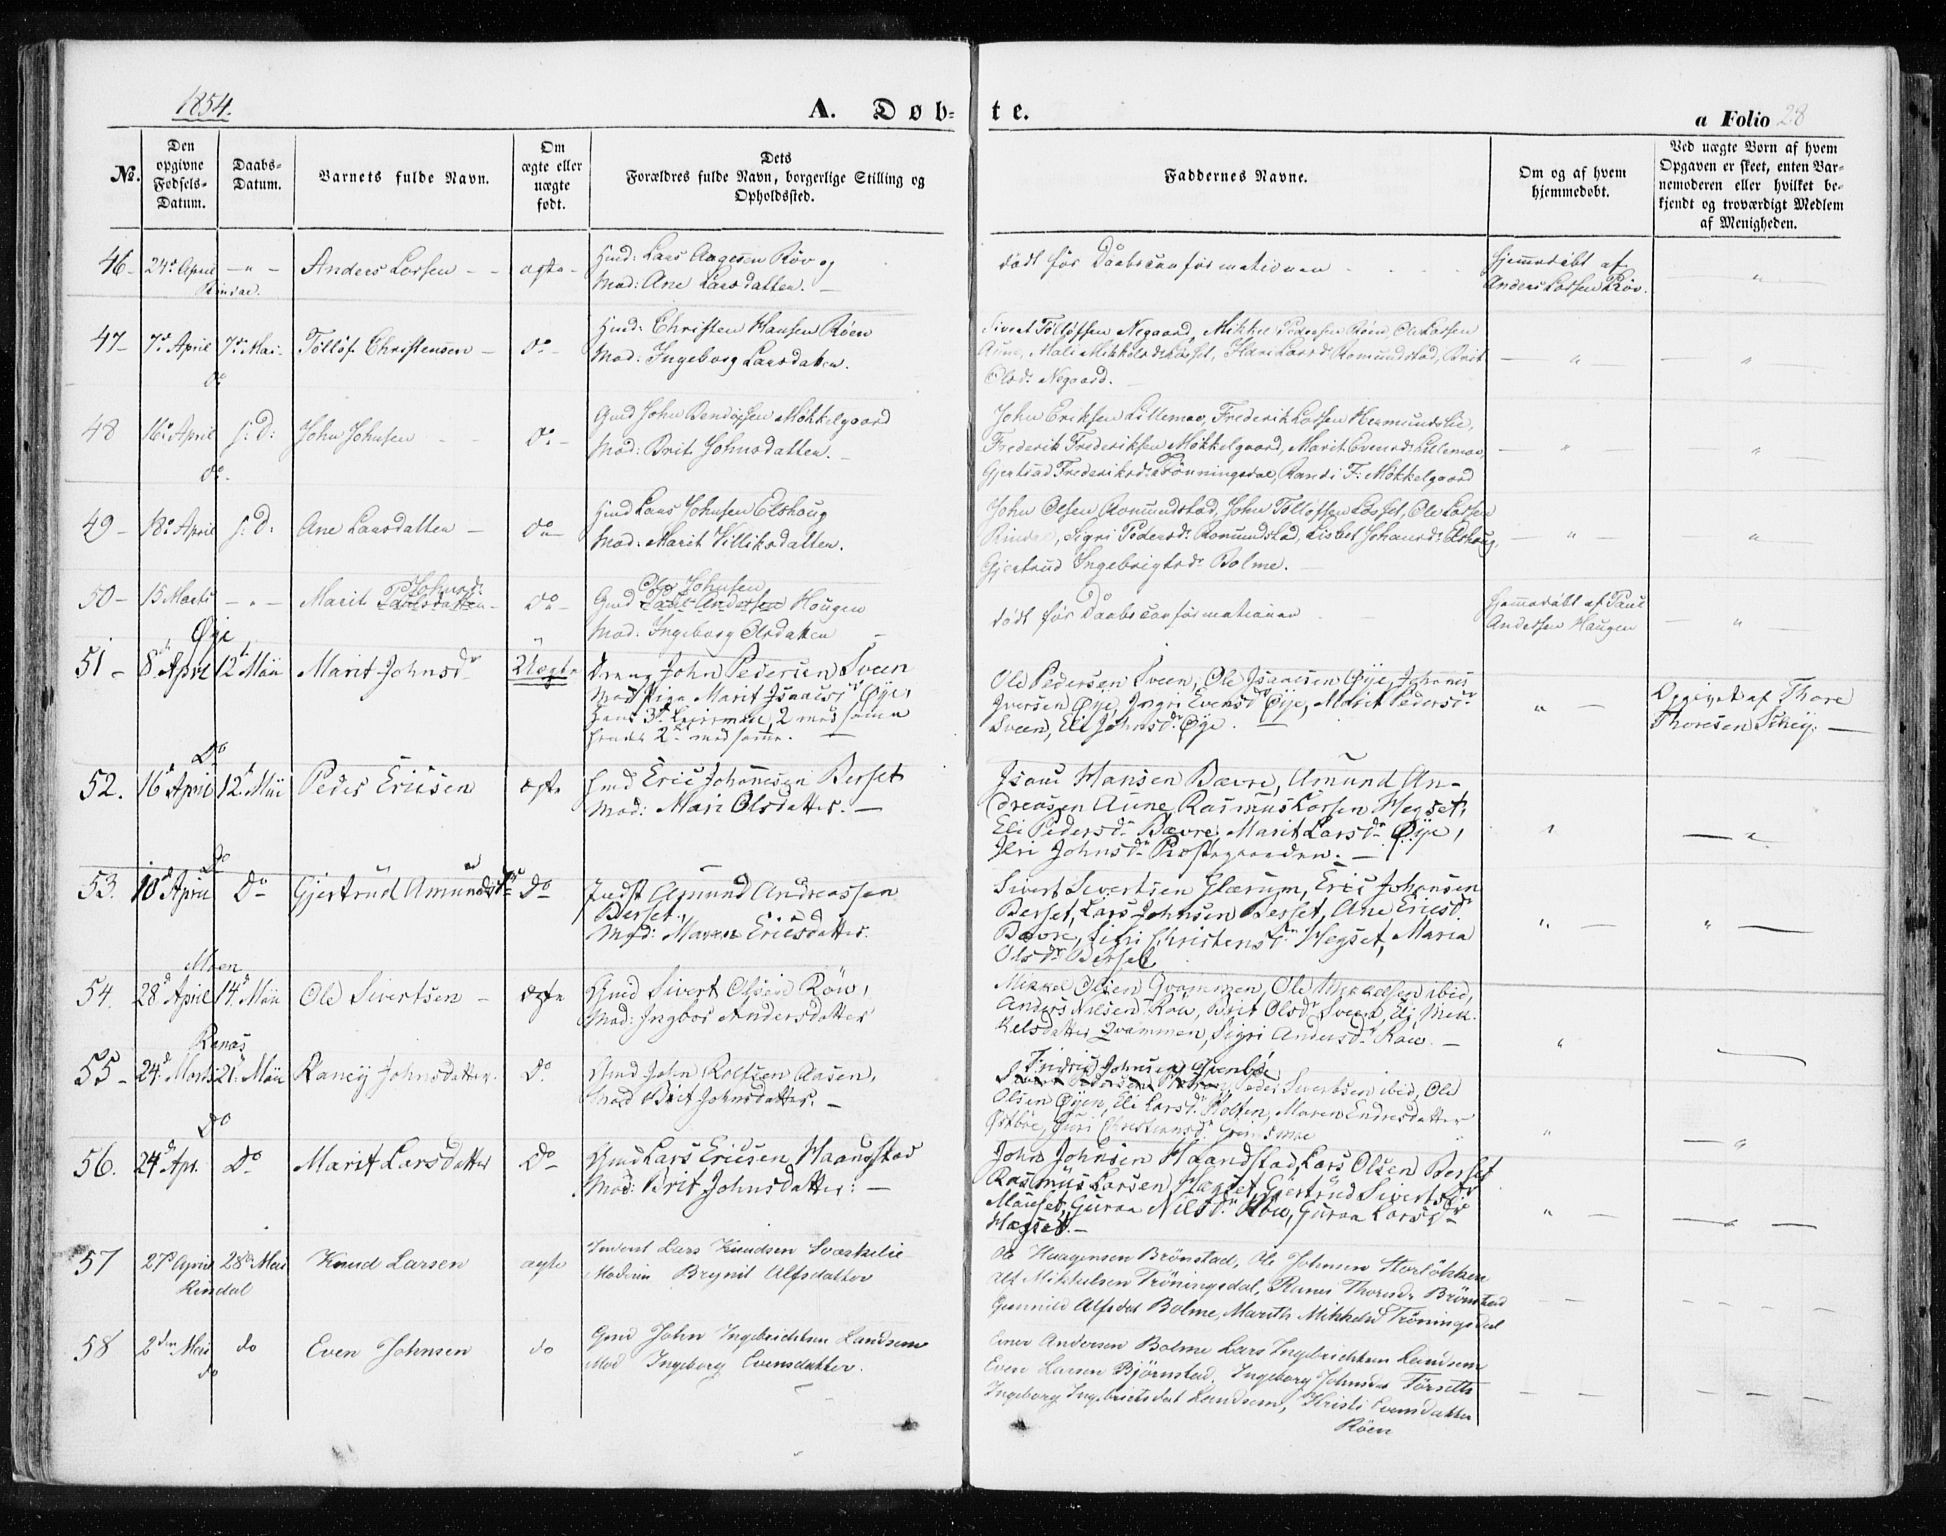 1854.
A. Døb-
te.
a Folio 28
No.
Den
opgivne
Fødsels-
Datum.
Daabs-
Datum.
Barnets fulde Navn.
Om
ægte eller
uægte
født.
Dets
Forældres fulde Navn, borgerlige Stilling og
Opholdssted.
Faddernes Navne.
Om og af hvem
hjemmedøbt.
Ved uægte Børn af hvem
Opgaven er skeet, enten Bar-
nemoderen eller hvilket be-
kjendt og troværdigt Medlem
af Menigheden.
46 - 24de April - " - Anders Larsen - - ægte -
Rindal.
Gmd: Lars Aagesen Röv og
Mod: Ane Larsdatter. -
død før Daabsconfirmationen
Hjemmedøbt af
Anders Larsen Röv.
47 - 7de April 7de Mai - Tölløf Christensen - do -
do
Gmd: Christen Hansen Röen
Mod: Ingeborg Larsdatter.
Sivert Tölløfsen Negaard, Mikkel Pedersen Röen, Ole Larsen
Aune, Mali Mikkelsd Løset, Marit Larsd: Romundstad, Brit
Olsd: Negaard. -
48 16de April s: D: John Johnsen - - do -
do.
Gmd John Bendixsen Møkkelgaard
Mod: Brit Johnsdatter. -
John Eriksen Lillemo, Frederik Larsen Hermundslie,
Frederik Frederiksen Møkkelgaard, Marit Evensd: Lillemo,
Gjertrud Frederiksd: Trønningsdal, Randi F: Møkkelgaard
49 - 18de April s: D: Ane Larsdatter - do -
Gmd Lars Johnsen Elshoug
Mod: Marit Villiksdatter.
John Olsen Romundstad, John Tölløfsen Løset, Ole Larsen
Rindal, Sigri Pedersd: Romundstad, Lisbet Johansd: Elshoug,
Gjertrud Ingebrigtsd: Bolme. -
50 - 15 Marts - " - Marit Olsdatter - do -
Ole Johnsen
Gmd Paul Andersen Hougen
Mod: Ingeborg Olsdatter -
død før Daabsconfirmationen
Hjemmedøbt af Paul
Andersen Haugen
Øye
51 - 8de April 12te Mäii Marit Johnsd Uægte
Dreng John Pedersen Sveen
Mod: Pige Marit Isaacsd Øye,
hans 3de Leiermaal, 2 med samme
hendes 2de med samme. -
Ole Pedersen Sveen, Ole Isaacsen Øye, Johannes
Iversen Øye, Ingri Evensd Øye, Marit Pedersd
Sveen, Eli Johnsd Øye. -
Opgivet af Thore
Thoresen Skey. -
Do
52. 16de April 12te Mäii Peder Ericsen ægte
Gmd Eric Johannesen Berset
Mod: Mari Olsdatter. -
Isaac Hansen Bævre, Amund An-
dreasen Aune, Rasmus Larsen Hegset,
Eli Pedersd Bævre, Marit Larsd Øye,
Ilri Johnsd Præstegaarden. -
Do
53. 10de April Do Gjertrud Amundsd Do
Indst Amund Andreassen
Berset,
Mod: Maren Ericsdatter.
Sivert Sivertsen Glærum, Eric Johansen
Berset, Lars Johnsen Berset, Ane Ericsd
Bævre, Siri Christensd Hegset, Maria
Olsd Berset
Moen
54. 28de April 14de Mäii Ole Sivertsen - ægte
Gmd Sivert Olsen Röv,
Mod: Ingbor Andersdatter
Mikkel Olsen Qvammen, Ole Mikkelsen ibid,
Anders Nilsen Röv, Brit Olsd Sveen, Eli Mik-
kelsdatter Qvammen, Sigri Andersd Röv. -
Ranæs
55 - 24de Marts 21de Mäii Raney Johnsdatter. Do.
Gmd John Rolfsen Aasen,
Mod Brit Johnsdatter. -
Fridric Johnsen
Peder Sivertsen ibid, Ole
Olsen Øyen, Eli Larsd Holten, Maren Endresdatter
Østbøe, Guri Christensd Grindsmoe
Do
56. 24de Apr. Do Marit Larsdatter Do
Gmd Lars Ericsen Haandstad
Mod: Brit Johnsdatter: -
John Johnsen Haandstad, Lars Olsen Berset
Rasmus Larsen Hegset, Gjertrud Sivertsd
Mauset, Guraa Nilsd Röv, Guraa Larsd
Hegset. -
57 27de April 28de Mai Knud Larsen ægte
Rindal
Inderst Lars Knudsen Svartelie
Moderen Brynil Alfsdatter
Ole Haagensen Brønstad, Ole Johnsen Storløkken
Alf Mikkelsen Trøningsdal, Ranei Thorsd: Brønstad
Gunnild Alfsdat Bolme, Marith Mikkelsd Trøningsdal
58 2den Mai do Even Johnsen do
do
Gmd John Ingebrichtsen Landsem
Mod Ingeborg Evensdatter.
Einer Andersen Bolme Lars Ingebrichtsen Landsem
Even Larsen Bjørnstad, Ingeborg Johnsdat Førseth
Ingeborg Ingebrietsdat Landsem, Kristi Evensdatter
Röen